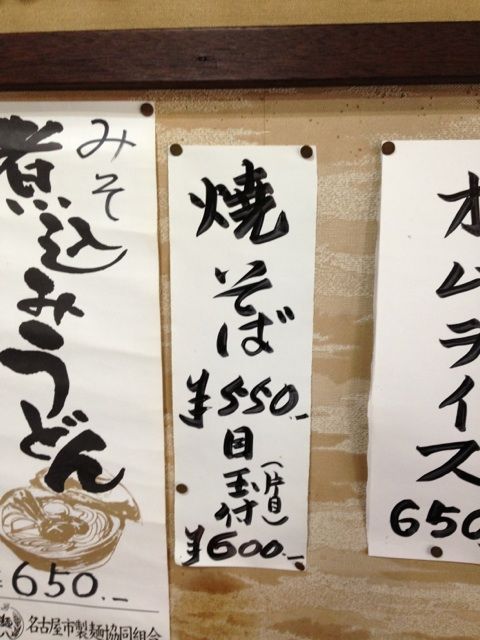 みそ
煮込みうどん
¥650.-
名古屋市製麺協同組合
焼そば
¥550.-
目玉付
(片目)
¥600.-
オムライス
650